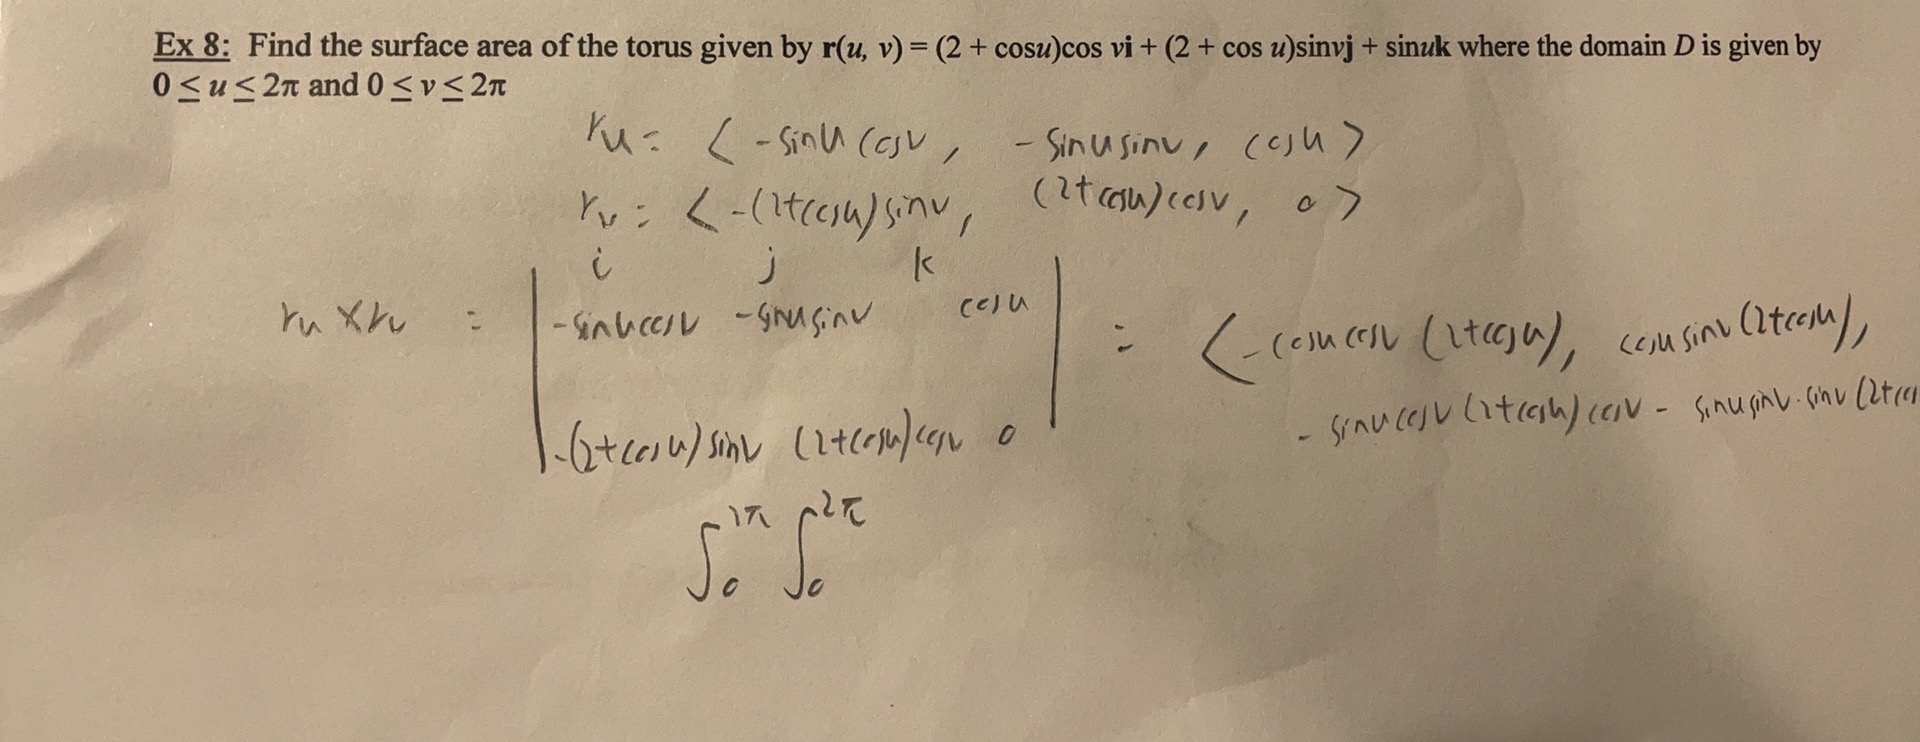 Ex 8: Find the surface area of the torus given by r(u, v) = (2 + cosu)cos vi + (2 + cos u)sinvj + sinuk where the domain D is given by
0 ≤ u ≤ 2π and 0 ≤ v ≤ 2π
ru = < -sinu cosv, -sinusinv, cosu >
rv = < -(2+cosu)sinv, (2+cosu)cosv, 0 >
i j k
ru × rv = | -sinucosv -sinusinv cosu | = < -cosucosv (2+cosu), cosusinv(2+cosu),
-(2+cosu)sinv (2+cosu)cosv 0 - sinucosv(2+cosu)cosv - sinusinv·sinv(2+cos
∫₀^2π ∫₀^2π